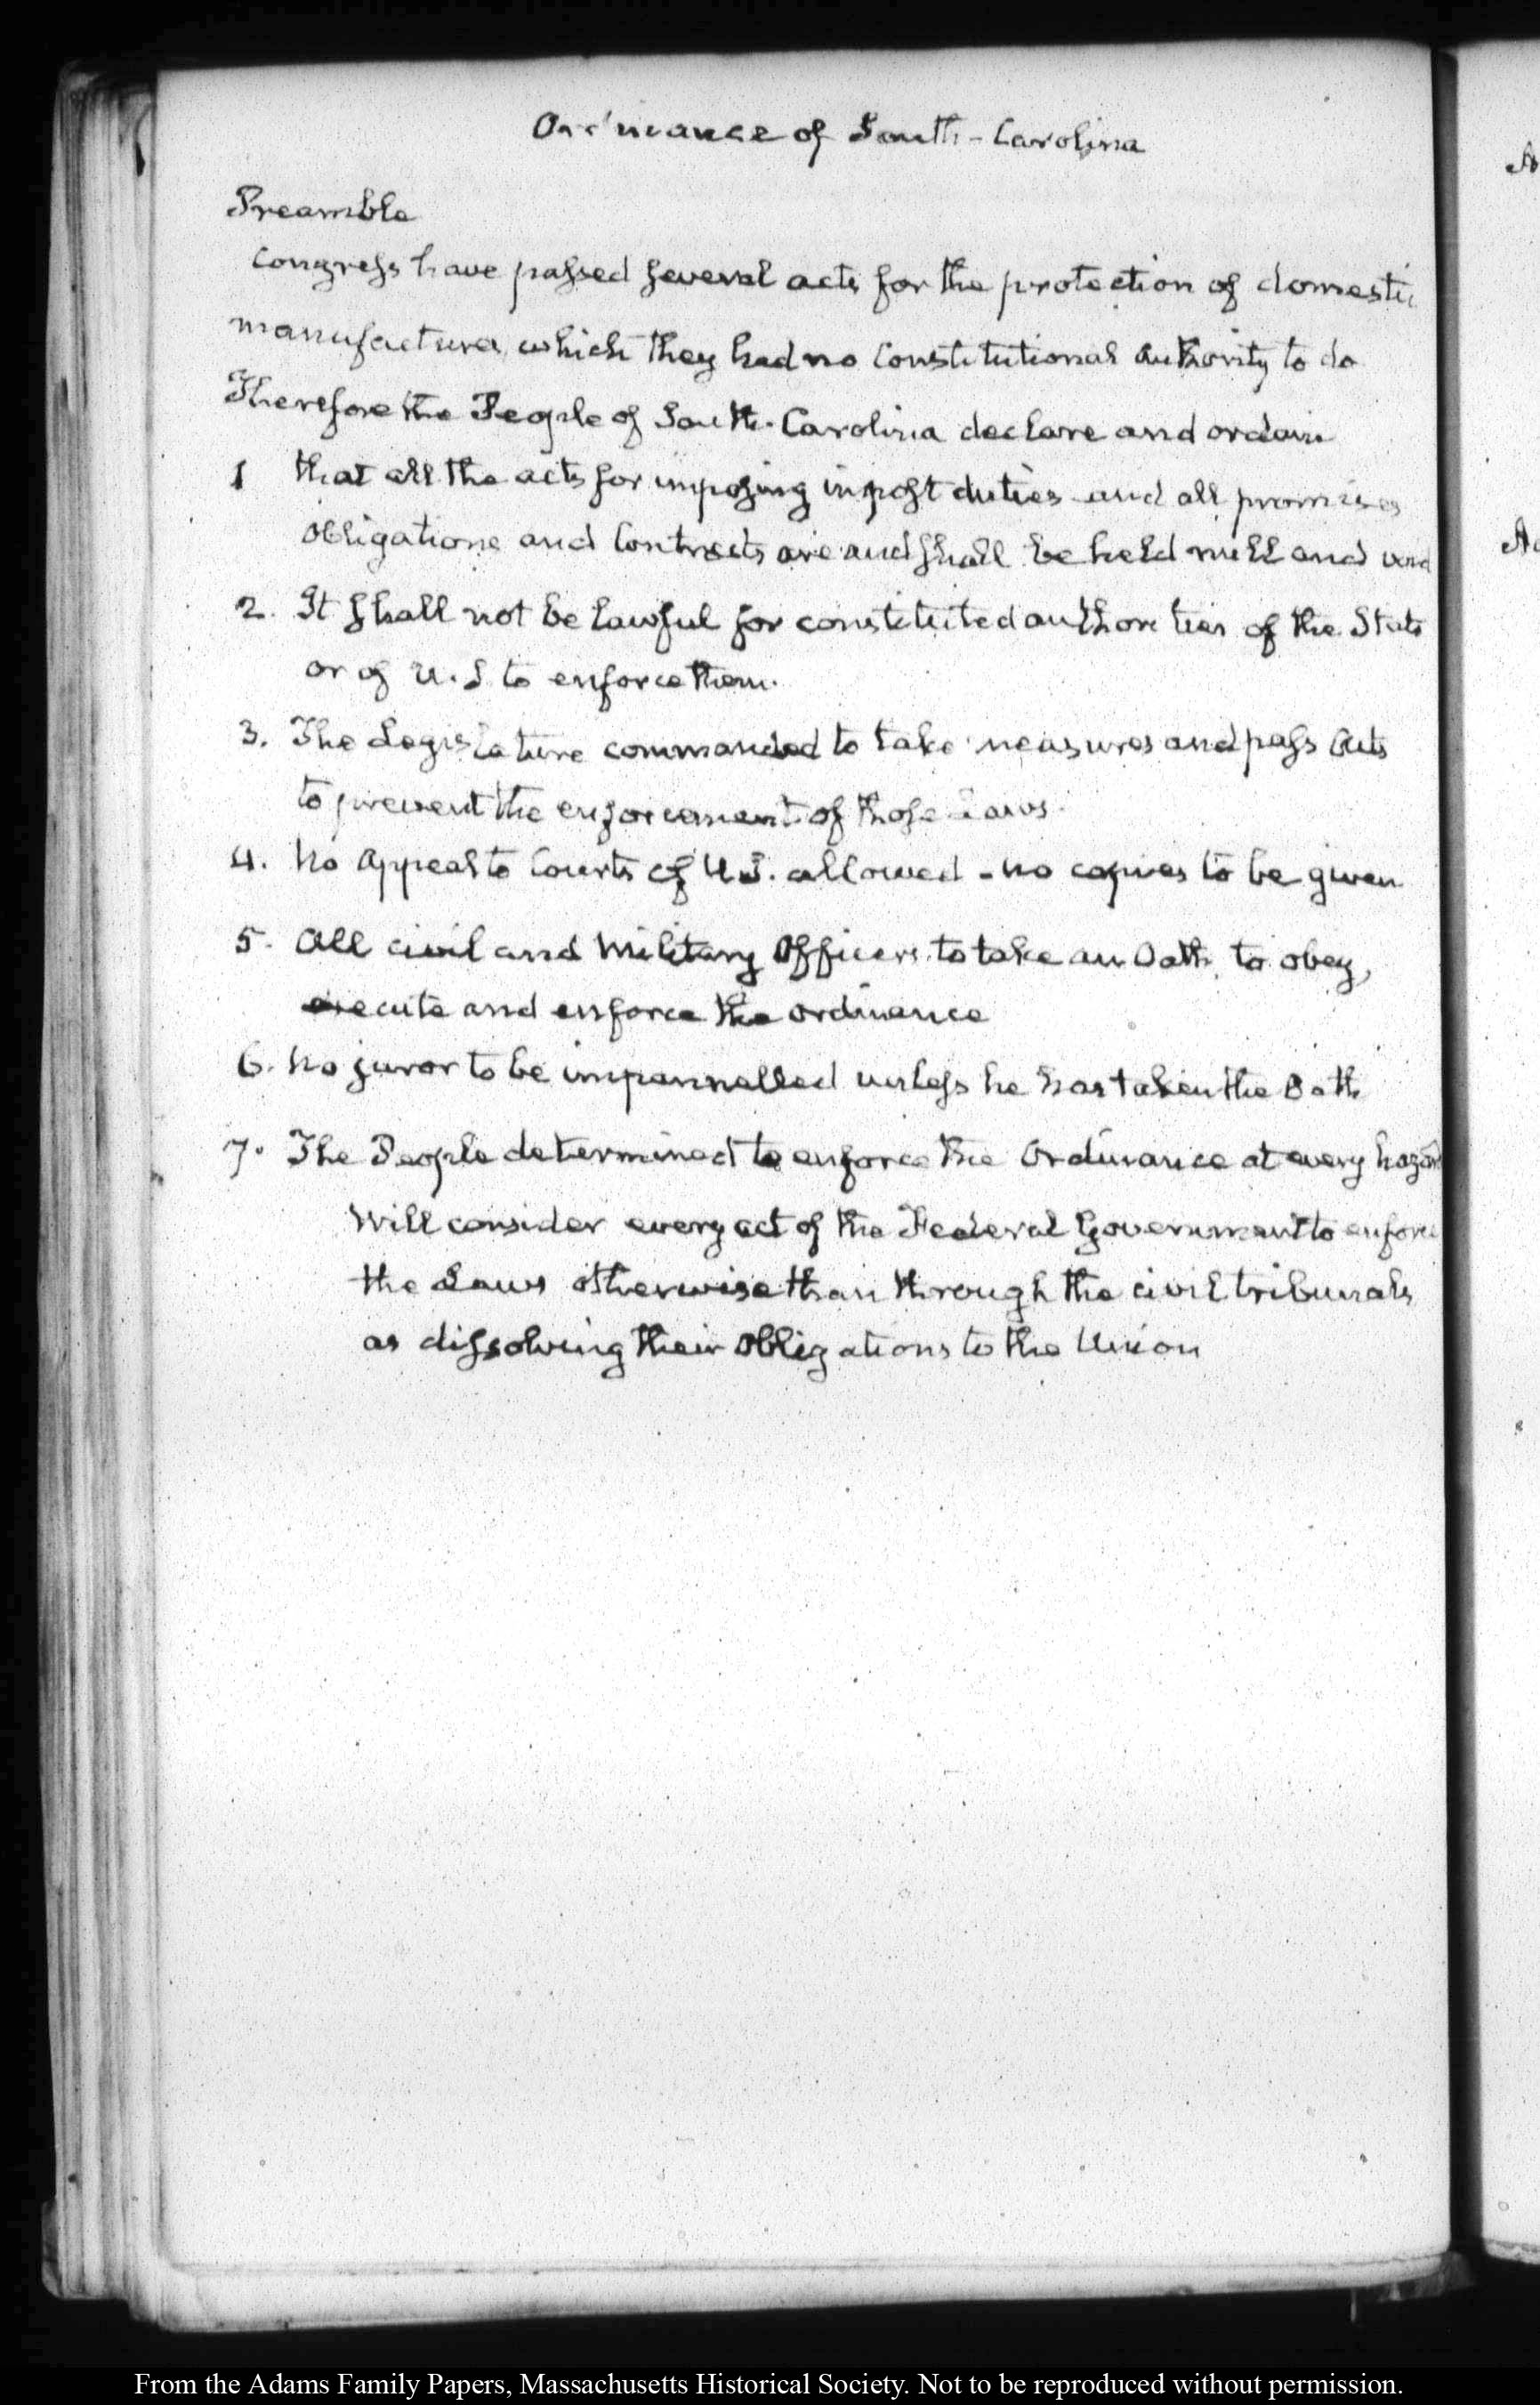 Ordinance of South-Carolina
Preamble
Congress have passed several acts for the protection of domestic
manufactures, which they had no Constitutional authority to do
Therefore the People of South-Carolina declare and ordain
1 that all the acts for imposing impost duties and all promises
obligations and Contracts are and shall be held null and void
2. It shall not be lawful for constituted authorities of the State
or of U.S to enforce them.
3. The Legislature commanded to take measures and pass Acts
to prevent the enforcement of those Laws.
4. No Appeal to Courts of U.S. allowed - no copies to be given
5. All civil and Military Officers to take an Oath, to obey,
execute and enforce the ordinance
6. No juror to be impannelled unless he has taken the Oath
7. The People determined to enforce the Ordinance at every hazard
Will consider every act of the Federal Government to enforce
the Laws otherwise than through the civil tribunals
as dissolving their obligations to the Union
From the Adams Family Papers, Massachusetts Historical Society. Not to be reproduced without permission.